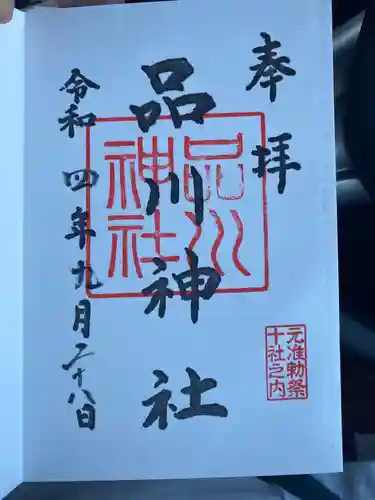 奉拝
品川神社
品川神社
元准勅祭
十社之内
令和四年九月二十八日